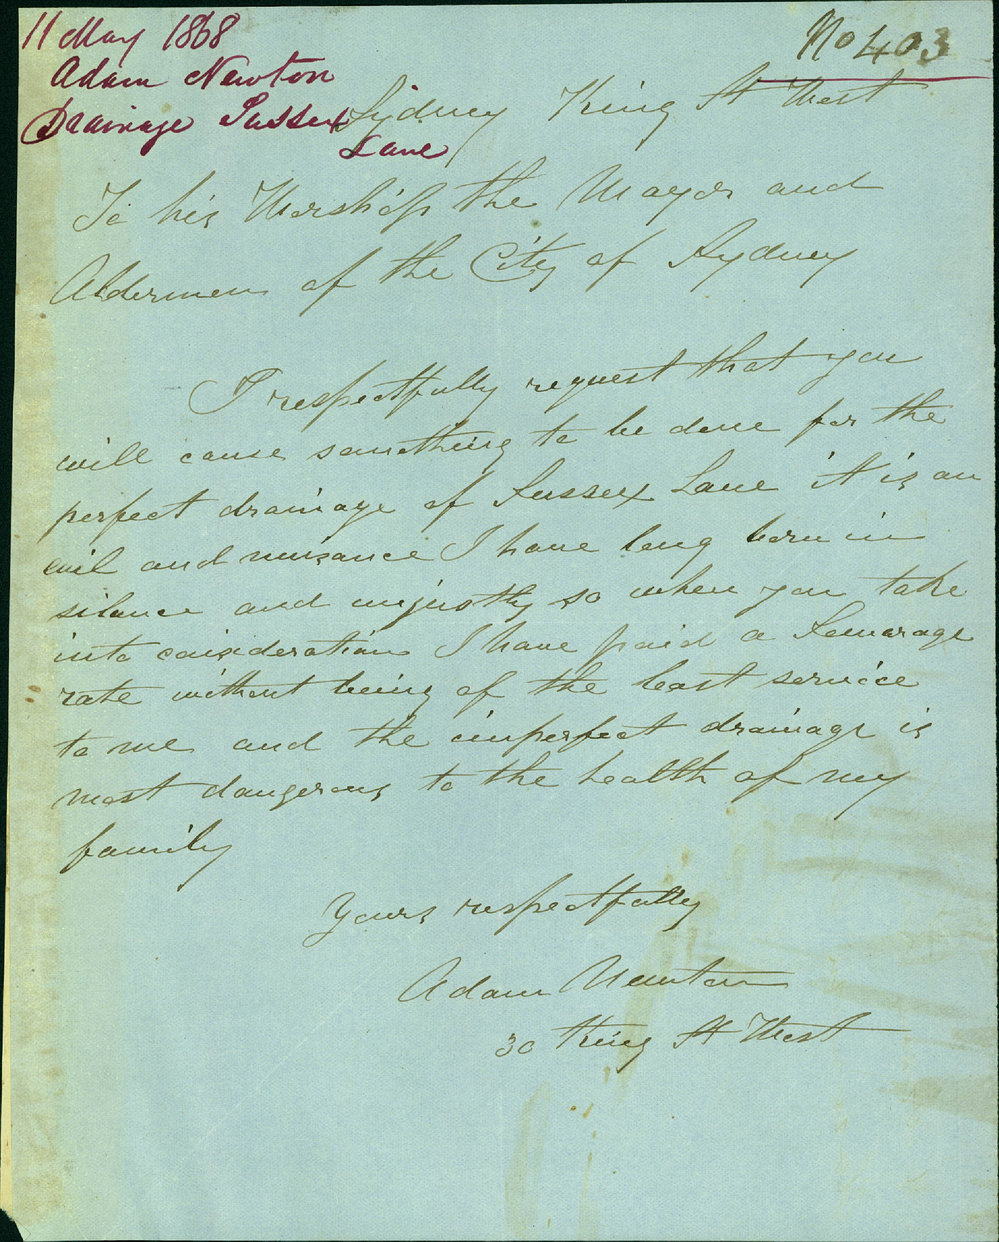 11 May 1868
Adam Newton
Drainage Sussex
Lane
No 403
Sydney King St West
To his Worship the Mayor and
Aldermen of the City of Sydney
I respectfully request that you
will cause something to be done for the
perfect drainage of Sussex Lane it is an
evil and nuisance I have long born in
silance and unjustly so when you take
into consideration I have paid a Sewarage
rate without being of the least service
to me and the imperfect drainage is
most dangerous to the health of my
family
Yours respectfully
Adam Newton
30 King St West